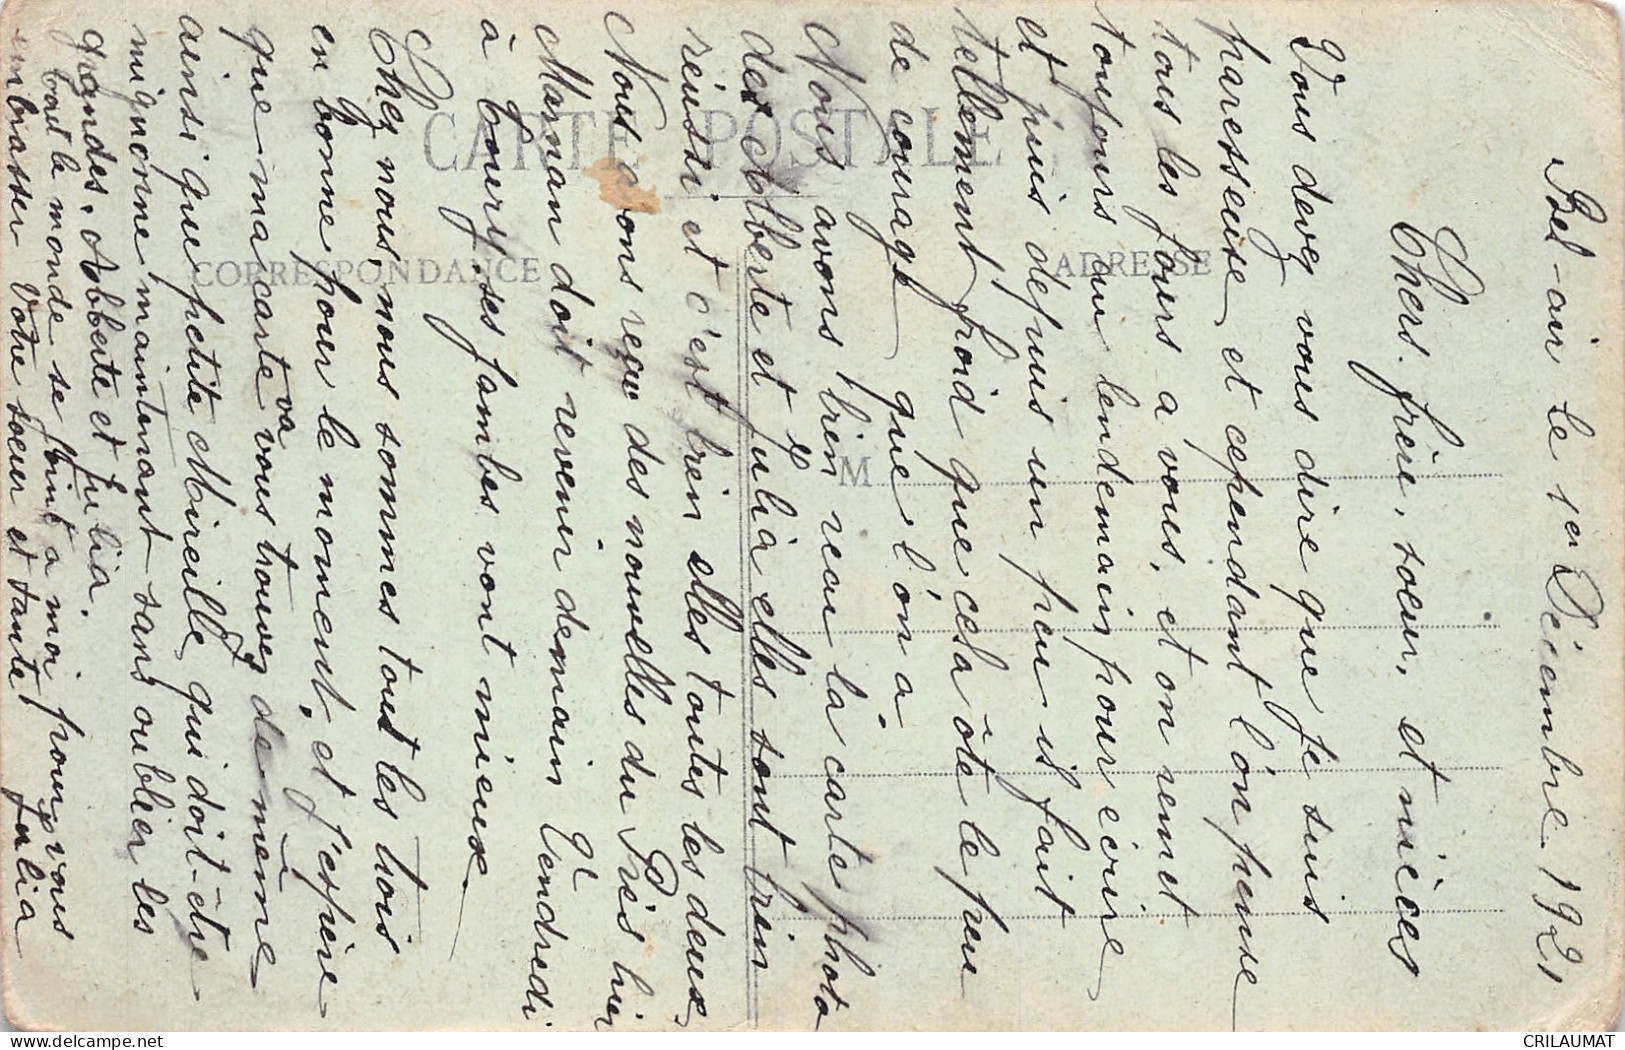 Bel-air le 1er Décembre 1921
Chers frère, soeur, et nièces
Vous devez vous dire que je suis
paresseuse, et cependant l'on pense
tous les jours a vous, et on remet
toujours au lendemain pour écrire
et puis dépuis un peu il fait
tellement froid que cela ôte le peu
de courage que l'on a.
Nous avons bien recu la carte photo
des Abberte et Julia elles sont bien
réussi et c'est bien elles toutes les deux
Nous avons reçu des nouvelles du Près hier
Maman doit revenir demain Vendredi
à Boury, ses jambes vont mieux.
Chez nous, nous sommes tout les trois
en bonne pour le moment, et j'espère
que ma carte va vous trouvez de même
ainsi que petite Mireille, qui doit-être
mignonne maintenant sans oublier les
grandes, Abberte et Julia.
tout le monde se joint a moi pour vous
embrasser Votre soeur et tante Julia
CARTE POSTALE
CORRESPONDANCE
ADRESSE
M
CRILAUMAT